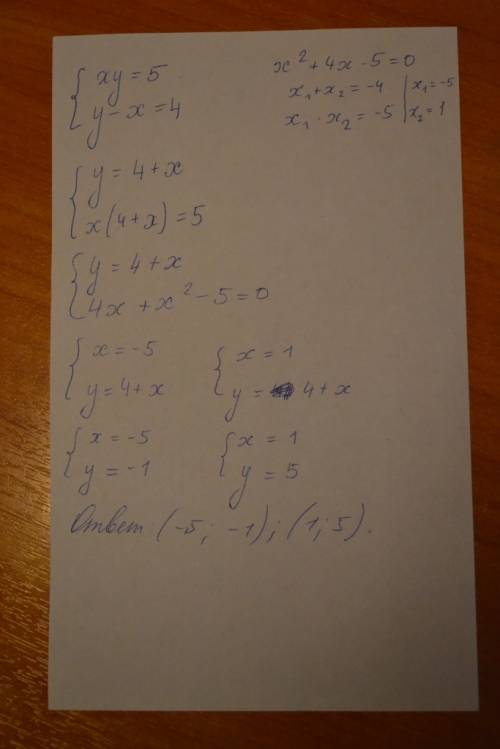 xy = 5
y - x = 4
x² + 4x - 5 = 0
x₁ + x₂ = -4 | x₁ = -5
x₁ · x₂ = -5 | x₂ = 1
y = 4 + x
x(4 + x) = 5
y = 4 + x
4x + x² - 5 = 0
x = -5
y = 4 + x
x = 1
y = 4 + x
x = -5
y = -1
x = 1
y = 5
Ответ (-5; -1); (1; 5).